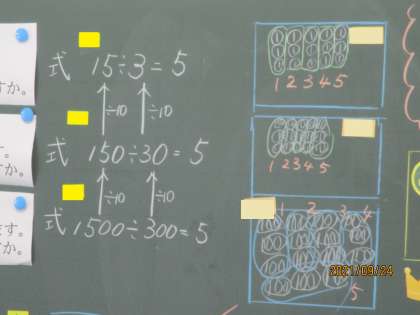 すか。
式 15÷3=5
÷10 ÷10
す。
すか。
式 150÷30=5
÷10 ÷10
ます。
すか。
式 1500÷300=5
1 2 3 4 5
1 2 3 4 5
1 2 3 4
100 100 100
5
2021/09/24